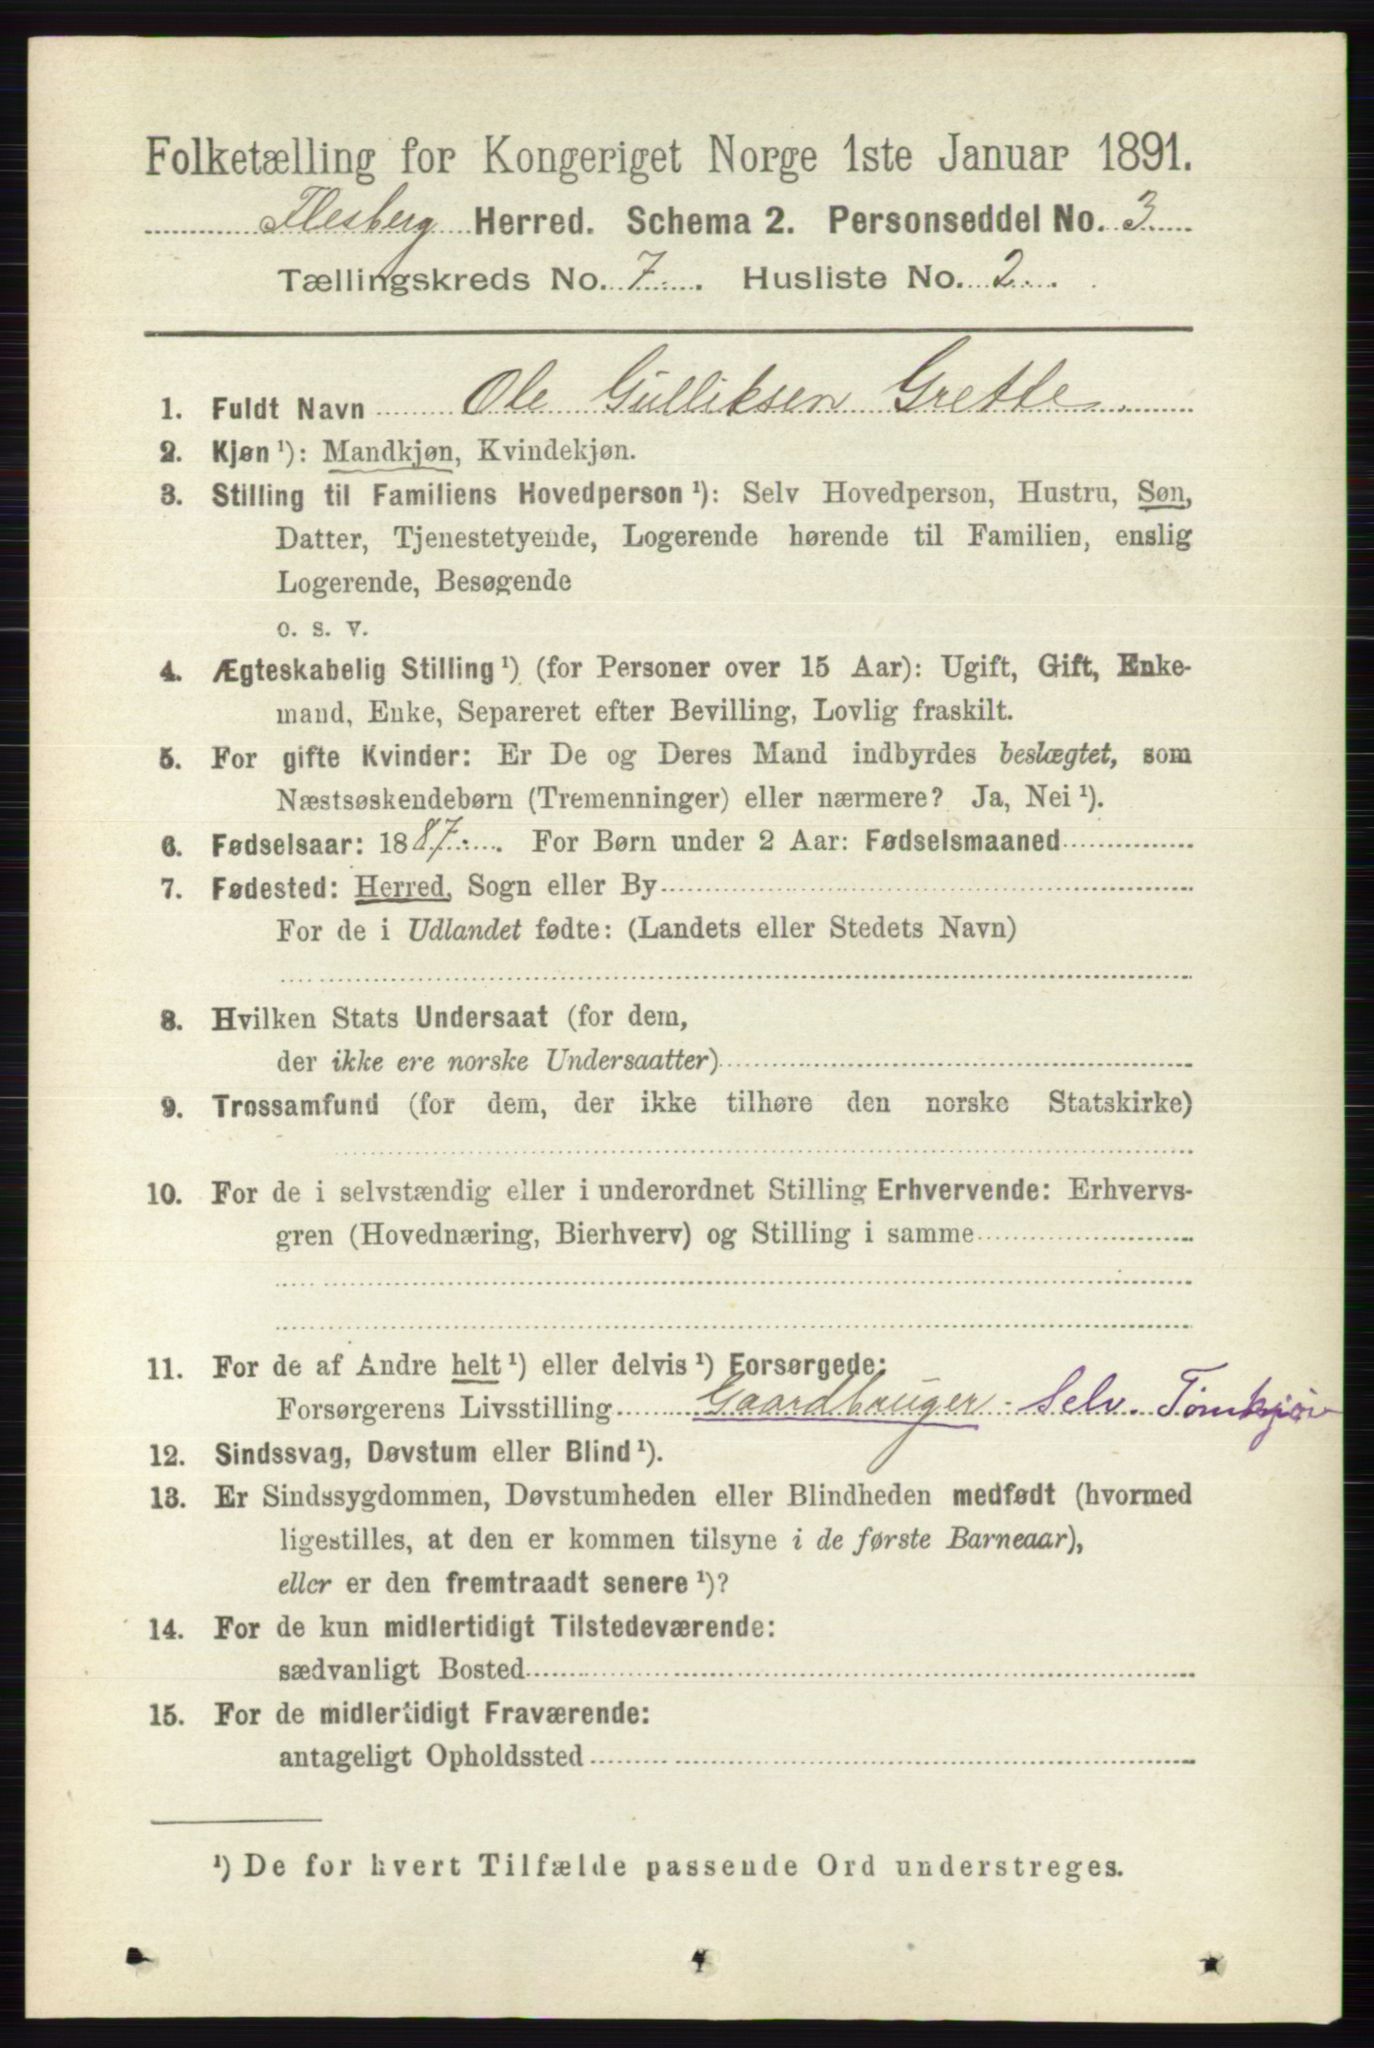 Folketælling for Kongeriget Norge 1ste Januar 1891.
Flesberg Herred. Schema 2. Personseddel No. 3
Tællingskreds No. 7. Husliste No. 2.
1. Fuldt Navn Ole Gulliksen Grette
2. Kjøn ¹): Mandkjøn, Kvindekjøn.
3. Stilling til Familiens Hovedperson ¹): Selv Hovedperson, Hustru, Søn,
Datter, Tjenestetyende, Logerende hørende til Familien, enslig
Logerende, Besøgende
o. s. v.
4. Ægteskabelig Stilling ¹) (for Personer over 15 Aar): Ugift, Gift, Enke-
mand, Enke, Separeret efter Bevilling, Lovlig fraskilt.
5. For gifte Kvinder: Er De og Deres Mand indbyrdes beslægtet, som
Næstsøskendebørn (Tremenninger) eller nærmere? Ja, Nei ¹).
6. Fødselsaar: 1887. For Børn under 2 Aar: Fødselsmaaned
7. Fødested: Herred, Sogn eller By
For de i Udlandet fødte: (Landets eller Stedets Navn)
8. Hvilken Stats Undersaat (for dem,
der ikke ere norske Undersaatter)
9. Trossamfund (for dem, der ikke tilhøre den norske Statskirke)
10. For de i selvstændig eller i underordnet Stilling Erhvervende: Erhvervs-
gren (Hovednæring, Bierhverv) og Stilling i samme
11. For de af Andre helt ¹) eller delvis ¹) Forsørgede:
Forsørgerens Livsstilling Gaardbruger Selv. Tømkjør
12. Sindssvag, Døvstum eller Blind ¹).
13. Er Sindssygdommen, Døvstumheden eller Blindheden medfødt (hvormed
ligestilles, at den er kommen tilsyne i de første Barneaar),
eller er den fremtraadt senere ¹)?
14. For de kun midlertidigt Tilstedeværende:
sædvanligt Bosted
15. For de midlertidigt Fraværende:
antageligt Opholdssted
¹) De for hvert Tilfælde passende Ord understreges.